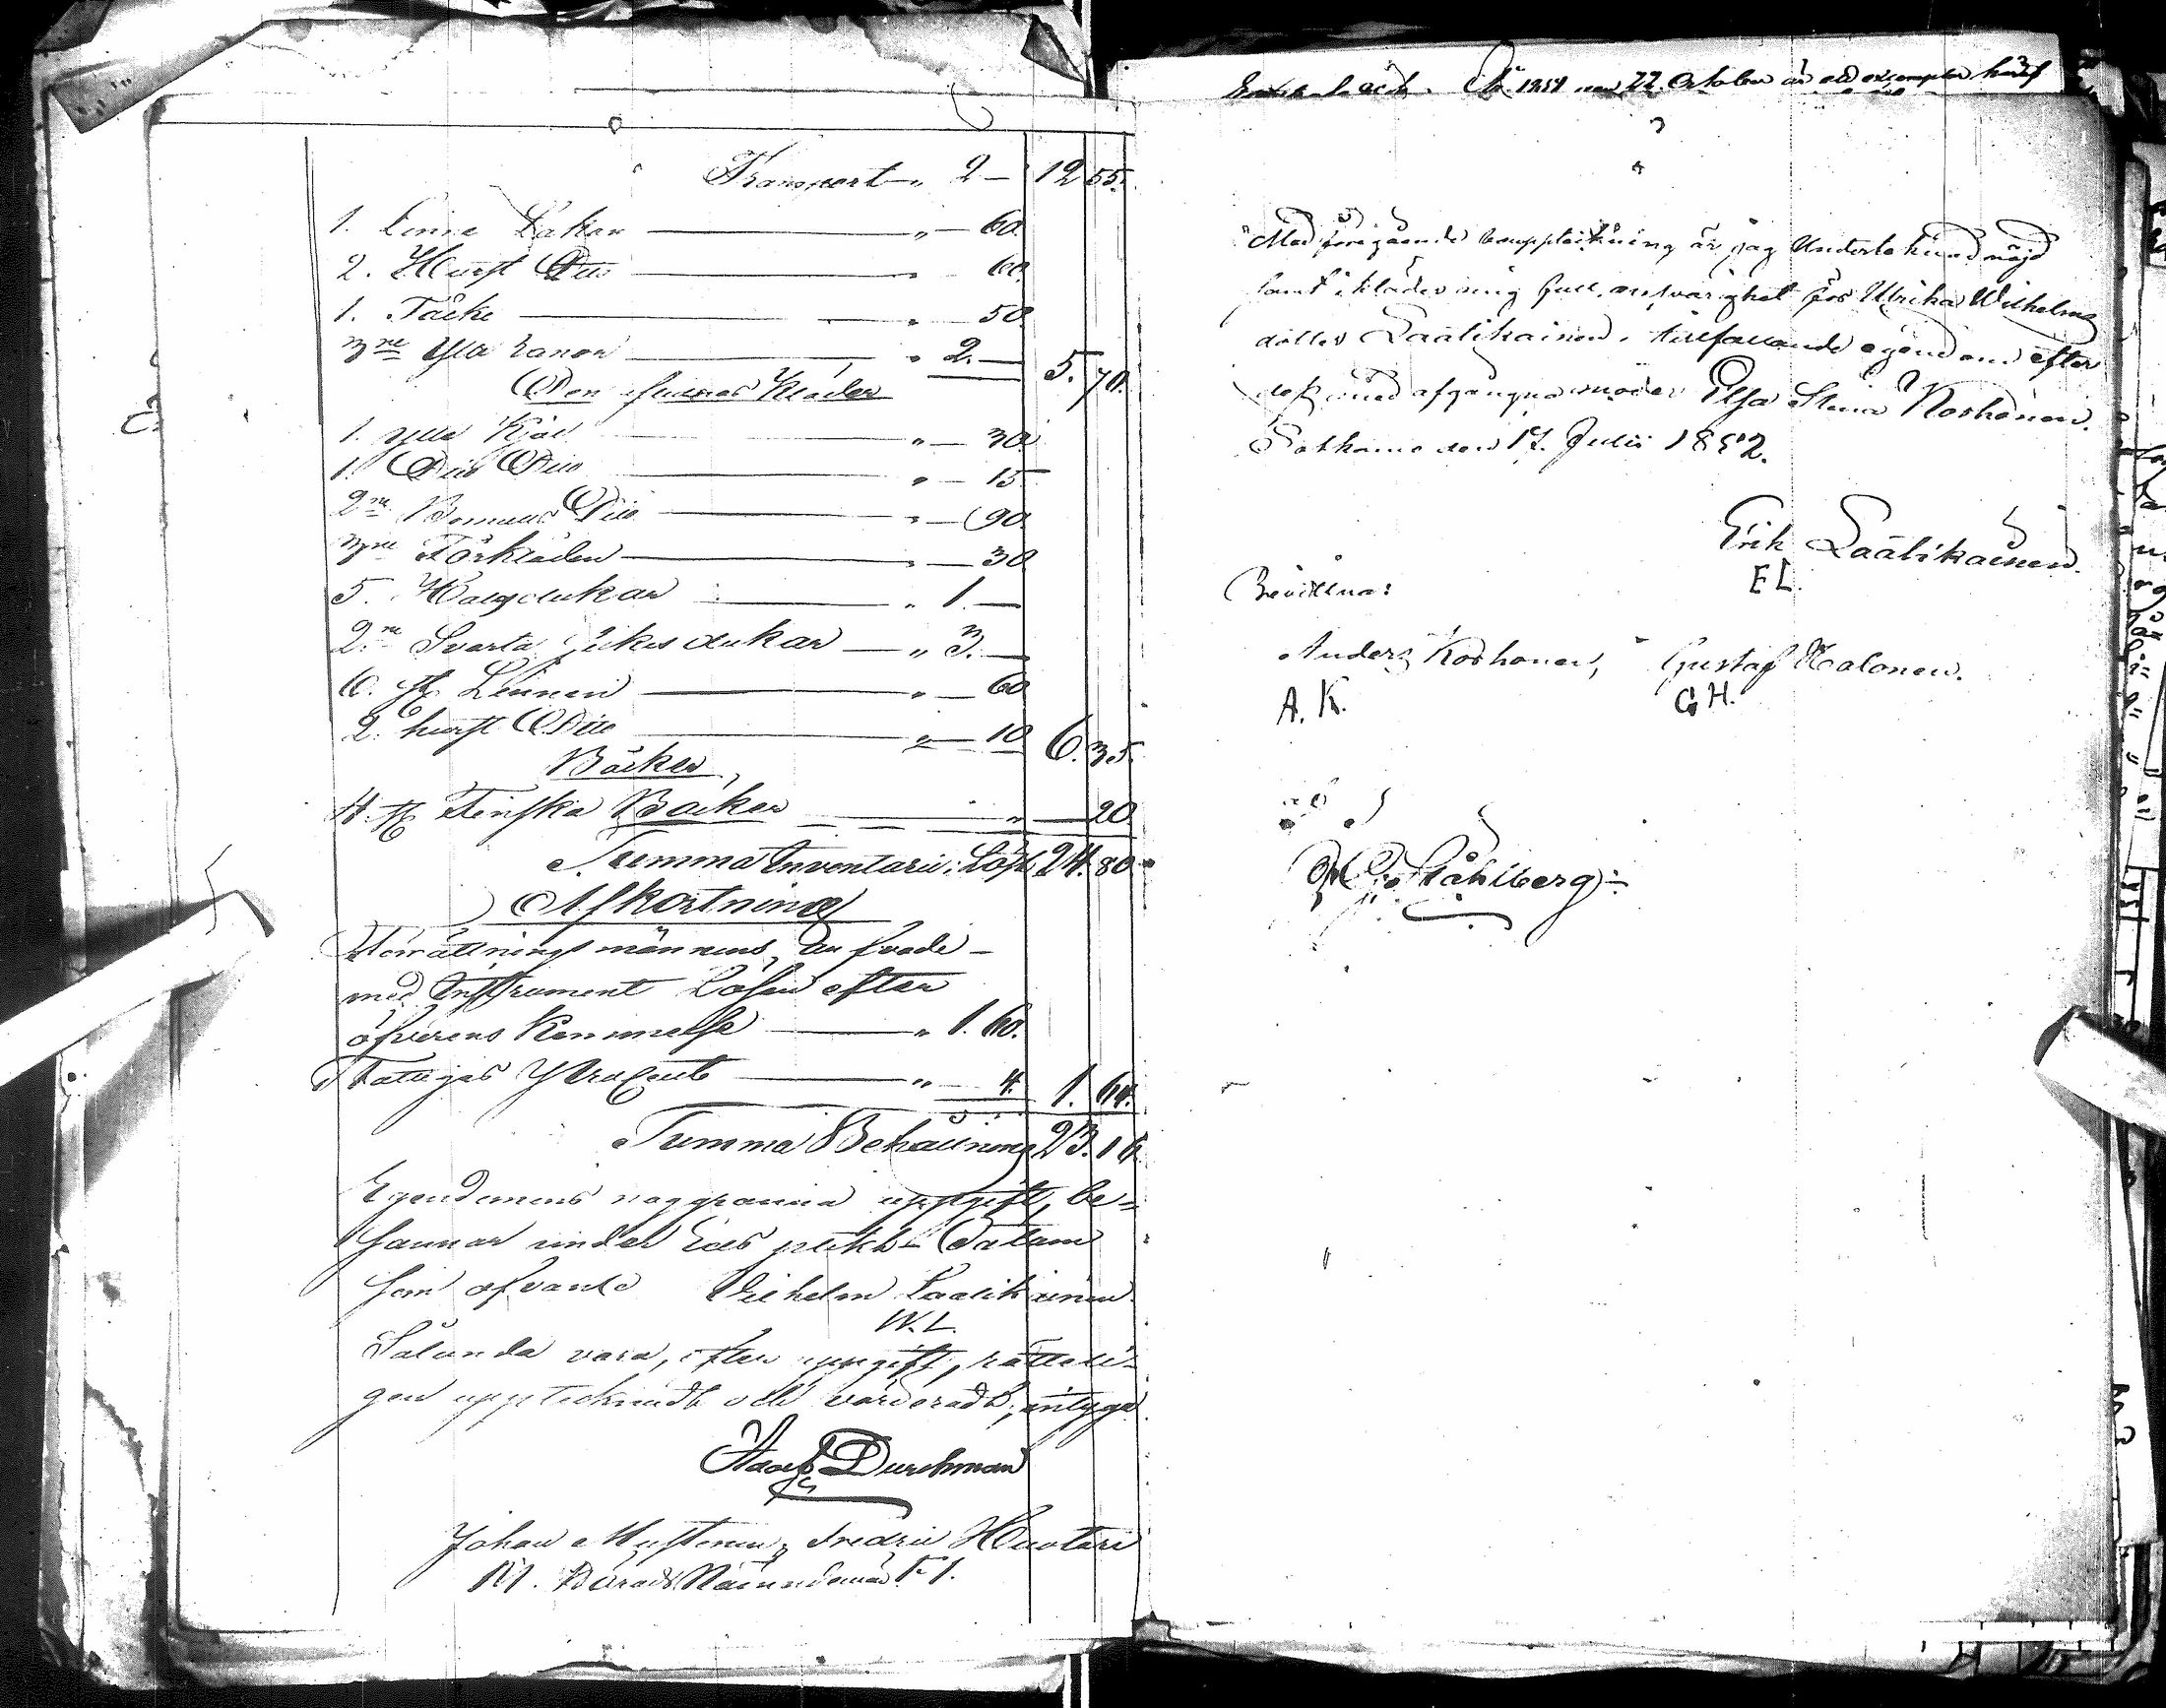 Transport „ 2 — 12 55.
1. Linne Lakan „ — 60.
2. Hurst Dito „ 60.
1. Täcke „ — 50.
3ne Ylla „ 2. — 5. 70.
Den Kläder
1. ylle Kjol „ — 30.
1. Dito Dito „ — 15
2ne Bomulls Dito „ — 90
3ne Förkläden „ — 30
5. Halsdukar „ 1. —
2ne Svarta Silkes dukar — „ 3. —
6. Linnen „ — 60
2. hurst Dito „ — 10 6. 35.
Böcker
4. Finska Böcker „ — 20.
Summa Inventarii 24. 80
Afkortning
Förrättnings männens, Arfvode
med Instrument Lösen efter
öfverens kommelse „ 1. 60.
Fattigas Procent „ — 4. 1. 64.
Summa Behållning 23. 16.
Egendomens noggranna uppgift, be-
sannar under Eds plikt Datum
som ofvan Vilhelm Laatikainen
W. L.
Sålunda vara, efter uppgift, rätteli-
gen upptecknadt och värderadt, intyga
Adolf Durchman
Johan Mustonen, Fredric Huotari
Härads Nämndemän
År 1854 den 22. October är ett exemplar häraf
Med föregående bouppteckning är jag Undertecknad nöjd
samt ikläder mig full ansvarighet för Ulrika Wilhelms
dotter Laatikainen, tillfallande egendom efter
dess med afgångna moder Elsa Stina Korhonen.
Sotkamo den 17. Julii 1852.
Erik Laatikainen.
E L.
Bevittna:
Anders Korhonen, Gustaf Halonen.
A. K. G H.
Ståhlberg